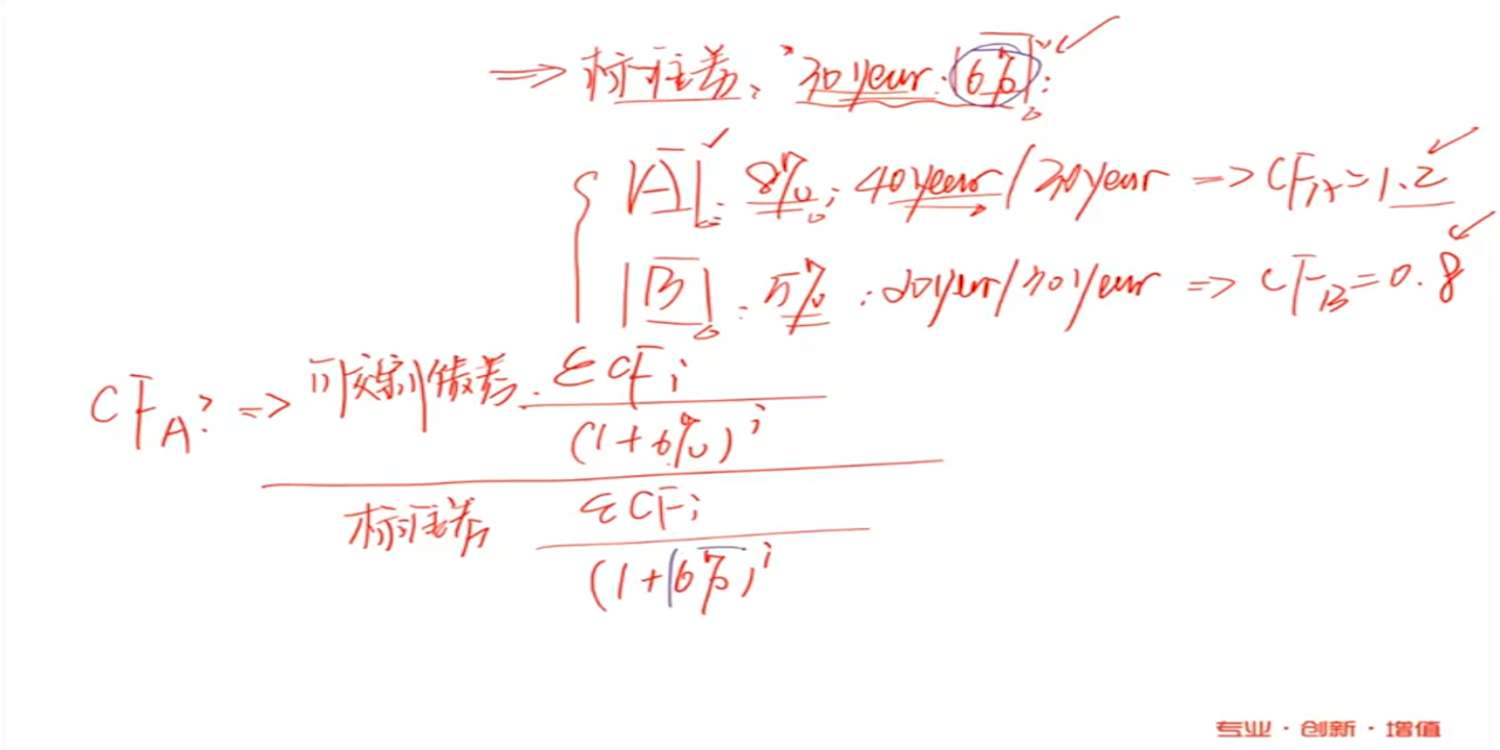 => 标准券、30year. 6%:
A: 8%: 40year/30year => CF_A=1.2
B: 5%: 20year/30year => CF_B=0.8
CF_A? => 可交割债券. ΣCFi
(1+6%)^i
标准券 ΣCFi
(1+6%)^i
专业·创新·增值